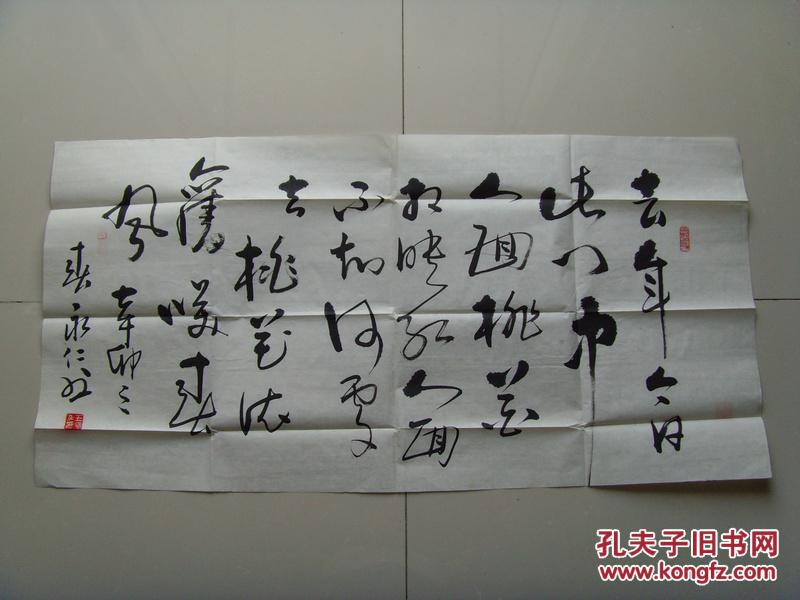 去年今日
此门中
人面桃花
相映红人面
不知何處
去桃花依
舊笑春
風 辛卯之
春永仁书
孔夫子旧书网
www.kongfz.com